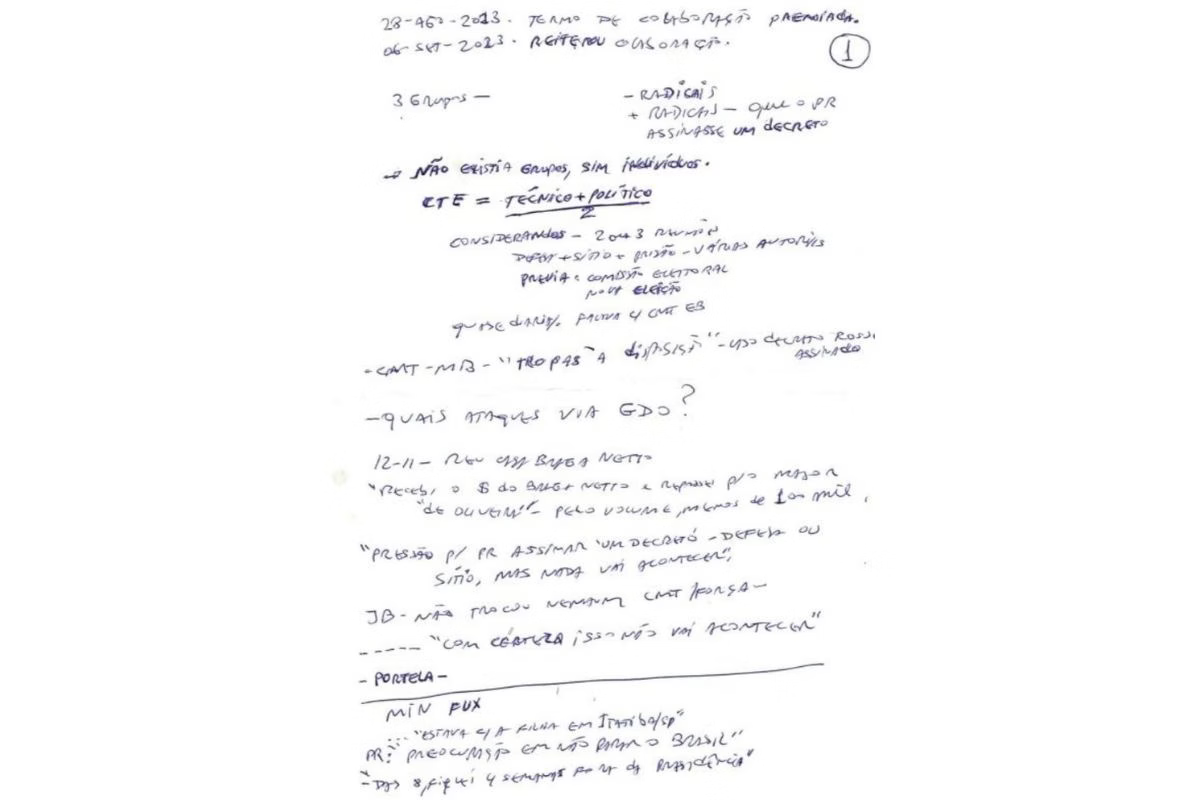 28-AGO-2023. TERMO DE COLABORAÇÃO PREMIADA.
06-SET-2023. REITEROU COLABORAÇÃO.
1
3 GRUPOS —
- RADICAIS
+ RADICAIS — QUE O PR
ASSINASSE UM DECRETO
→ NÃO EXISTIA GRUPOS, SIM INDIVÍDUOS.
CTE = TÉCNICO + POLÍTICO
2
CONSIDERANDOS — 2 OU 3 REUNIÕES
DEFESA + SÍTIO + PRISÃO - VÁRIAS AUTORID/S
PREVIA: COMISSÃO ELEITORAL
NOVA ELEIÇÃO
QUASE DIARIA/. FALAVA C/ CMT EB
- CMT - MB - "TROPAS À DISPOSIÇÃO" - DECRETO
ASSINADO
- QUAIS ATAQUES VIA GDO?
12-11 — REU CASA BRAGA NETTO
"RECEBI O $ DO BRAGA NETTO E REPASSEI P/O MAJOR
"DE OLIVEIRA" - PELO VOLUME, MENOS DE 100 MIL.
"PRESSÃO P/ PR ASSINAR "UM DECRETO - DEFESA OU
SÍTIO, MAS NADA VAI ACONTECER",
JB - NÃO TROCOU NENHUM CMT/FORÇA —
----- "COM CERTEZA ISSO NÃO VAI ACONTECER"
- PORTELA -
MIN FUX
... "ESTAVA C/ A FILHA EM ITATIBA/SP"
PR: "PREOCUPAÇÃO EM NÃO PARAR O BRASIL"
- "DAS 8, FIQUEI 4 SEMANAS FORA DA PRESIDÊNCIA"